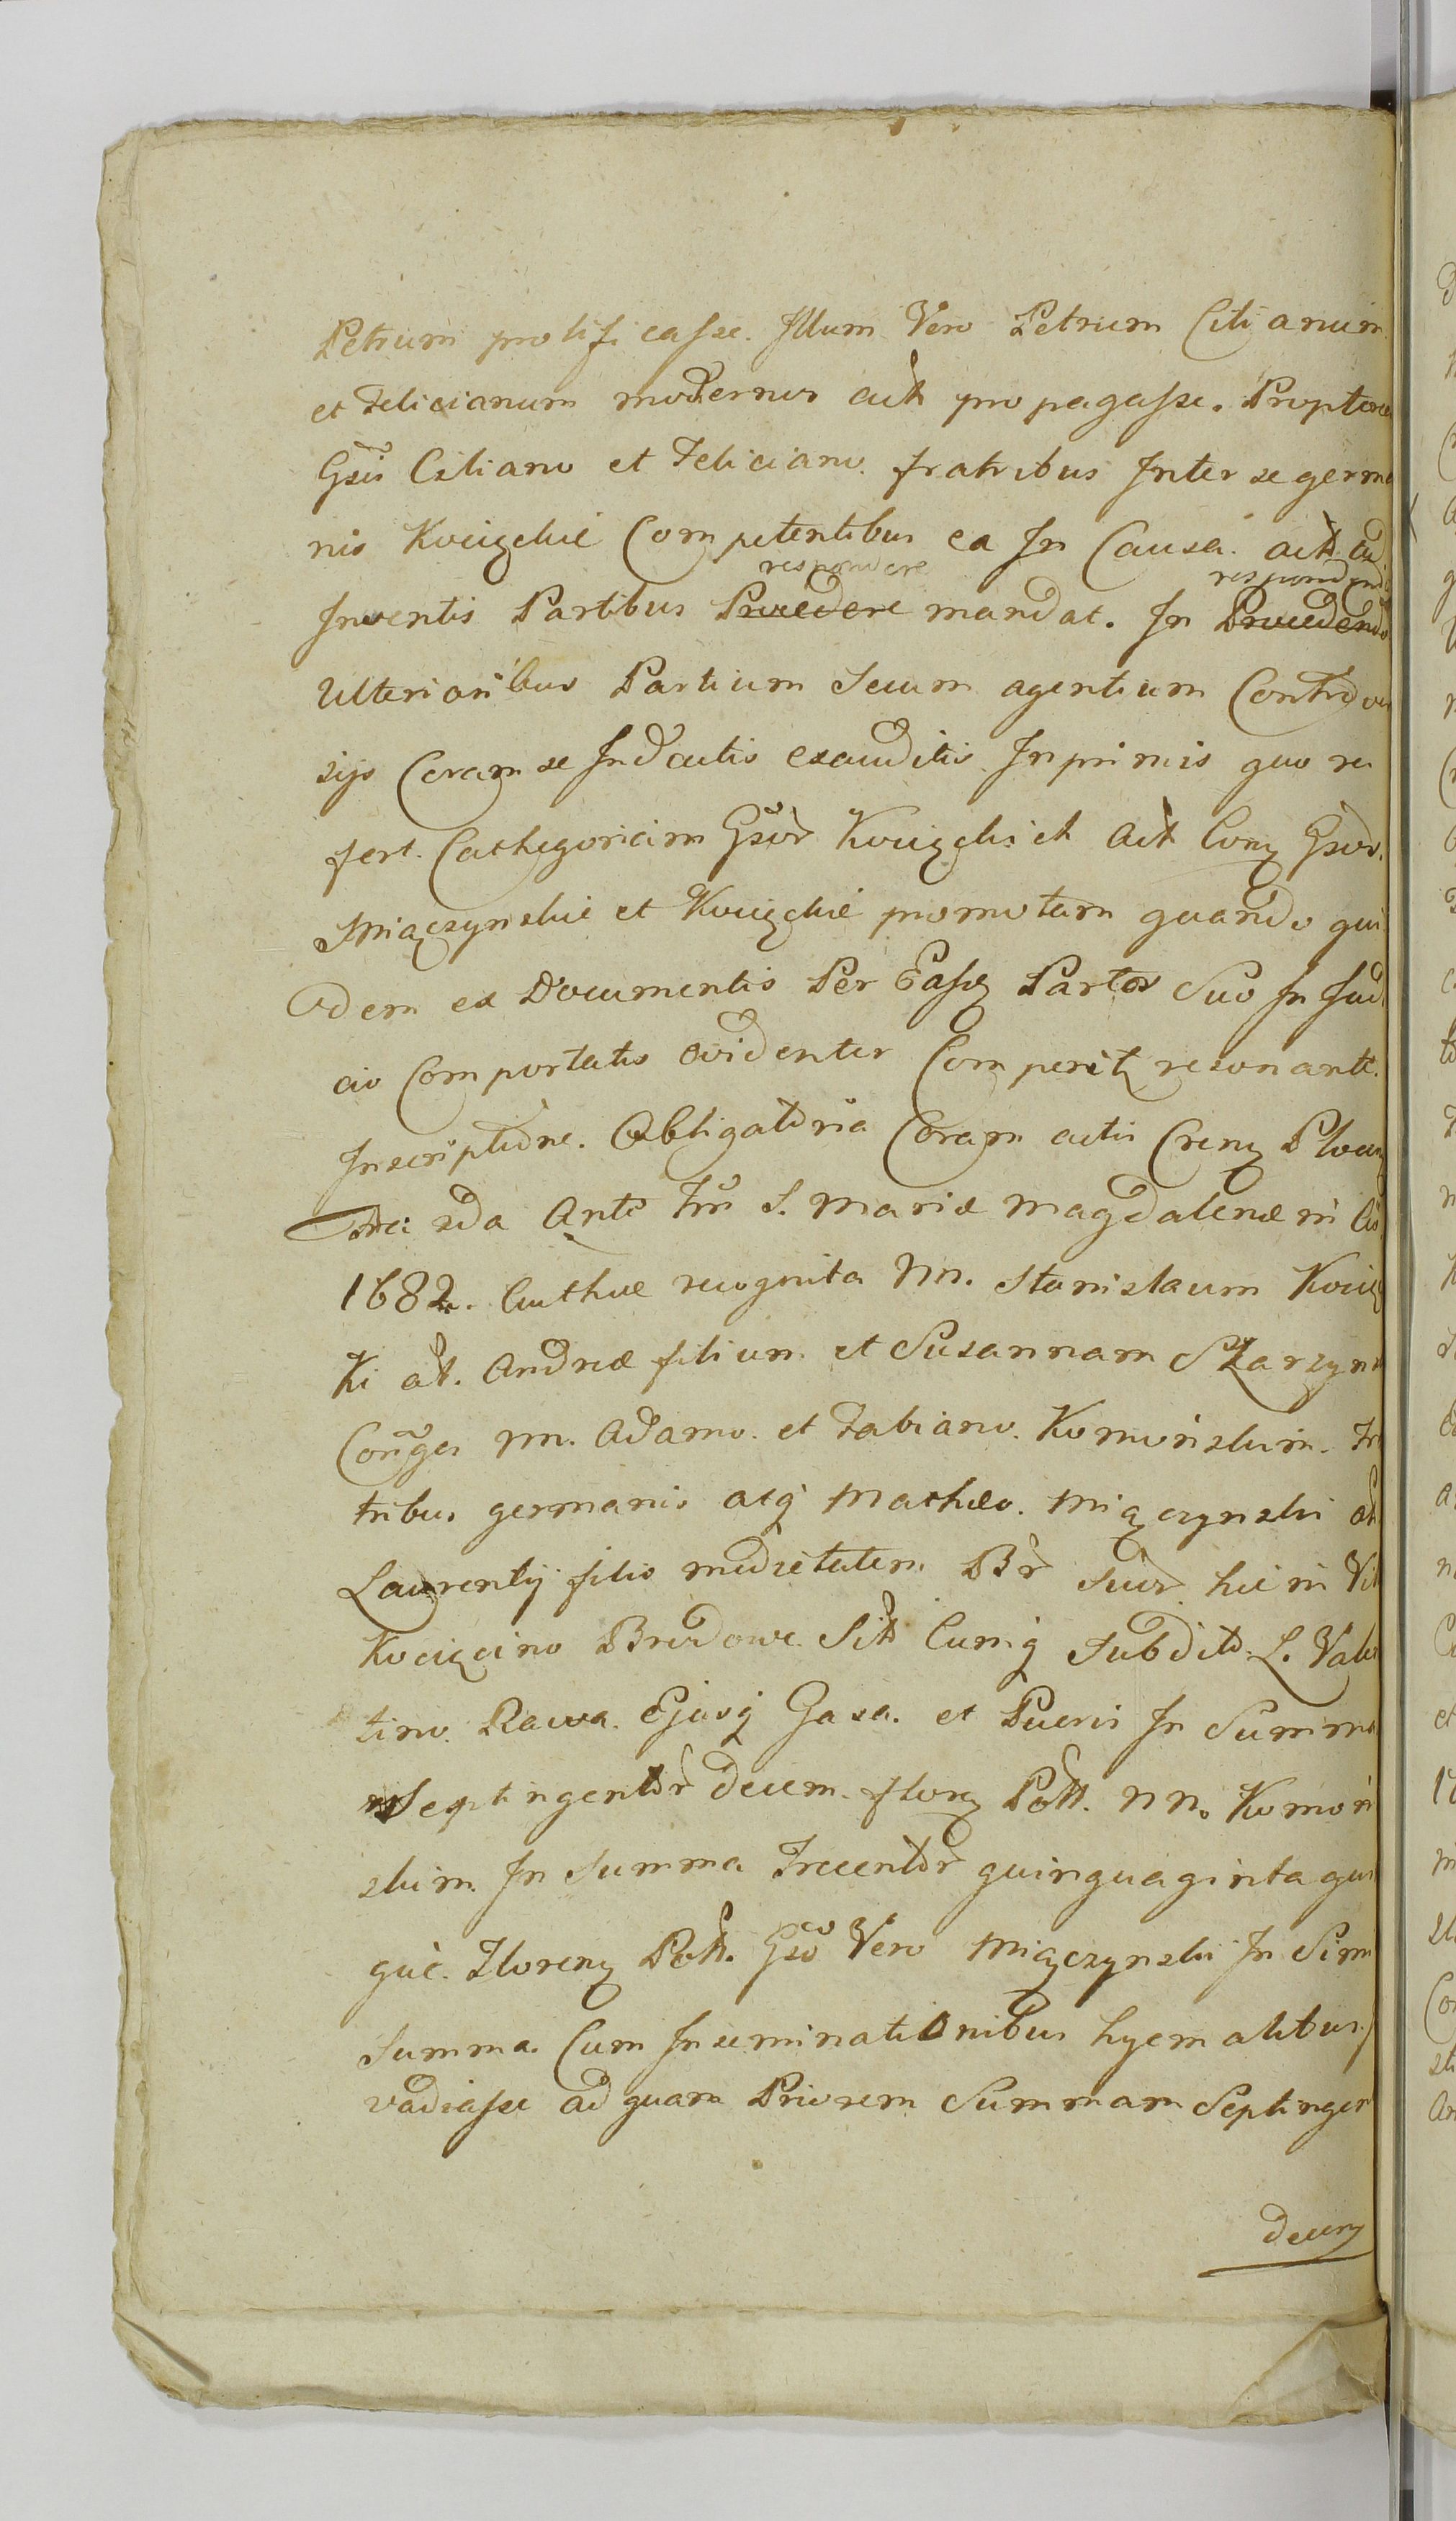 Petrum prolificasse. Illum Vero Petrum Cilianum
et Felicianum modernos actt propagasse. Propterea
Gsis Ciliano et Feliciano. fratribus Inter se germa
nis Kocięckie Competentibus ea In Causa. actt ad
respondere respondendo
Inventis Partibus Procedere mandat. In Procedendo
Ulterioribus Partium Secum agentium Controver
sijs Coram se Inductis exauditis Inprimis quo re
fert. Cathegoriam Gsor Kocięckich Actt Conz Gsos.
Miączynskie et Kocięckie promotam quando qui
dem ex Documentis Per Easq Partes Suo In Judi
cio Comportatis evidenter Comperitz resonante.
Inscriptione. Obligatoria Coram actis Crenz Plocen
Fria 2da Ante Fm S. Mariæ Magdalenæ in Ao
1682. Authve recognita NN. Stanislaum Kocięc
Ki ott. Andreæ filium et Susannam Skarzyns
Conges NN. Adamo. et Fabiano. Komoriskim. Fra
tribus germanis atq Mathæo. Miączynski ott
Laurentij filio medietatem Br Suor hic in Vil
Kocięcino Brodowe Sitt Cumq Subdito. L. Valen
tino. Rawa. Ejusq Gasa. et Pueris In Summa
Septingentor decem. florz Poll. NN. Komori
skim. In Summa Trecentor quinquaginta quin
que. Florenz Poll. Gso Vero Miączynski In Simi
Summa. Cum Inseminationibus hyemalibus.
vadiasse ad quam Priorem Summam Septingen
decem